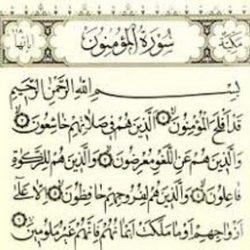 سُورَةُ الْمُؤْمِنُونَ
بِسْمِ اللَّهِ الرَّحْمَٰنِ الرَّحِيمِ
قَدْ أَفْلَحَ الْمُؤْمِنُونَ ۝ الَّذِينَ هُمْ فِي صَلَاتِهِمْ خَاشِعُونَ ۝
وَالَّذِينَ هُمْ عَنِ اللَّغْوِ مُعْرِضُونَ ۝ وَالَّذِينَ هُمْ لِلزَّكَوٰةِ
فَاعِلُونَ ۝ وَالَّذِينَ هُمْ لِفُرُوجِهِمْ حَافِظُونَ ۝ إِلَّا عَلَىٰ
أَزْوَاجِهِمْ أَوْ مَا مَلَكَتْ أَيْمَانُهُمْ فَإِنَّهُمْ غَيْرُ مَلُومِينَ ۝